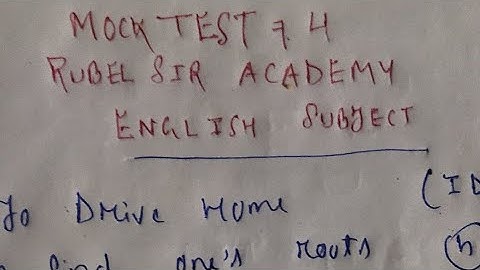 MOCK TEST 7 4
RUBEL SIR ACADEMY
ENGLISH SUBJECT
To Drive Home (ID
find one's roots (h